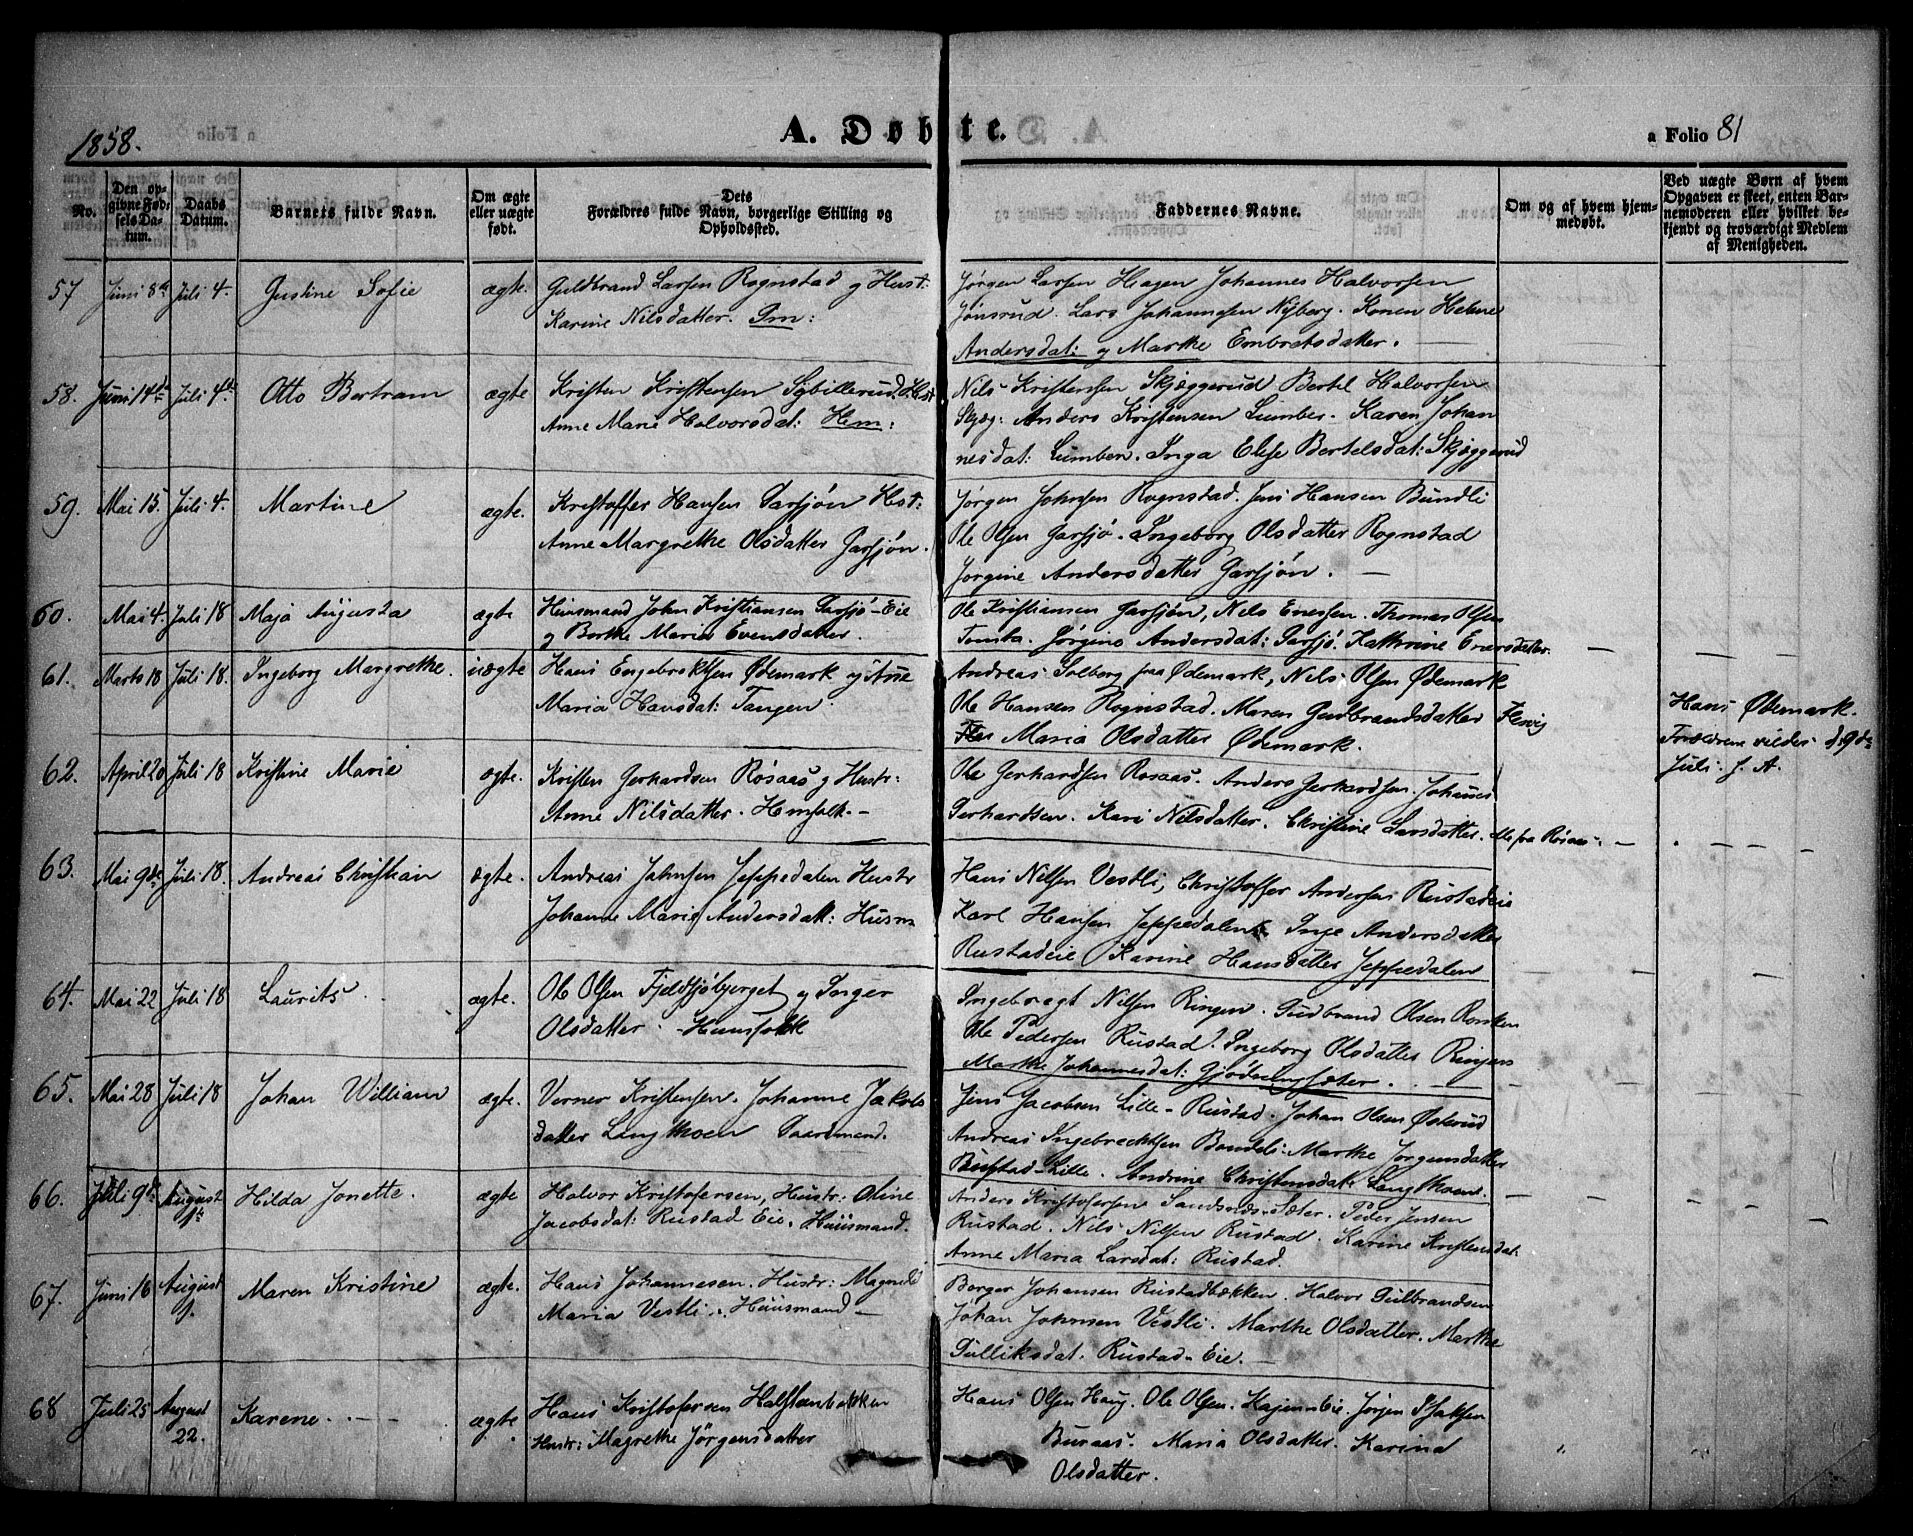 1858.
A. Døbte.
a Folio 81
No.
Den opgivne Fødselsdatum.
Daabs Datum.
Barnets fulde Navn.
Om ægte eller uægte født.
Dets Forældres fulde Navn, borgerlige Stilling og Opholdssted.
Faddernes Navne.
Om og af hvem hjemmedøbt.
Ved uægte Børn af hvem Opgaven er skeet, enten Barnemoderen eller hvilket bekjendt og troværdigt Medlem af Menigheden.
57 Juni 8de Juli 4. Gustine Sofie ægte. Guldbrand Larsen Rognstad og Hust:
Karine Nilsdatter. Gm:
Jørgen Larsen Hagen Johannes Halvorsen
Jønsrud. Lars Johannesen Nyberg. Konen Helene
Andersdat: og Marthe Embretsdatter.
58. Juni 14de Juli 4de Otto Bertram ægte Kristen Kristensen Sybillerud. Hst
Anne Marie Halvorsdat: Hem:
Nils Kristensen Skjæggerud Bertel Halvorsen
Skjæg: Anders Kristensen Lumber. Karen Johan
nesdat: Lumben. Inga Elise Bertelsdat: Skjæggerud
59. Mai 15. Juli 4. Martine ægte. Kristoffer Hansen Garsjøn Hst:
Anne Margrethe Olsdatter Garsjøn.
Jørgen Johnsen Rognstad. Jens Hansen Bundli
Ole Olsen Garsjø. Ingeborg Olsdatter Rognstad
Jørgine Andersdatter Garsjøn.
60. Mai 4. Juli 18 Maja Augusta ægte Huusmand John Kristiansen Garsjø-Eie
og Berthe Maria Evensdatter.
Ole Kristiansen Garsjøn, Nils Enersen. Thomas Olsen
Tomta. Jørgine Andersdat: Garsjø. Kathrine Enersdatter.
61. Marts 18 Juli 18. Ingeborg Margrethe. uægte Hans Engebrektsen Ødemark og Anne
Maria Hansdat: Tangen.
Andreas Solberg fra Ødemark, Nils Olsen Ødemark
Ole Hansen Rognstad. Maren Gudbrandsdatter
Maria Olsdatter Ødemark.
Hans Ødemark.
Forældrene vilder d. 9de
Juli. f. A.
62. April 20 Juli 18 Kristine Marie ægte. Kristen Gerhardsen Rösaas og Hustr:
Anne Nilsdatter. Hmfolk.
Ole Gerhardsen Rosaas. Anders Gerhardsen. Johannes
Gerhardsen. Kari Nilsdatter. Christine Larsdatter. Alle fra Rösaas
63. Mai 9de Juli 18. Andreas Christian ægte. Andreas Johnsen Jeppedalen Hustr
Johanne Marie Andersdatt: Husm
Hans Nilsen Vestli, Christoffer Andersen Rustadeie
Karl Hansen Jeppedalen Inge Andersdatter
Rustadeie Karine Hansdatter Jeppedalen
64. Mai 22 Juli 18 Laurits ægte. Ole Olsen Fjeldsjøbjerget og Inger
Olsdatter. Huusfolk
Ingebregt Nilsen Ringen. Gudbrand Olsen Rorken
Ole Pedersen Rustad. Ingeborg Olsdatter Ringen
Marthe Johannesdat: Gjødsungsæter.
65. Mai 28 Juli 18 Johan William ægte. Verner Kristensen. Johanne Jakobs
datter Langthoen Gaardmand.
Jens Jacobsen Lille-Rustad. Johan Olsen Østerud
Andreas Ingebrechtsen Bondeli. Marthe Jørgensdatter
Rustad-Lille. Andrine Christensdat: Langthoen.
66. Juli 9de August 1te Hilda Jonette. ægte Halvor Kristofersen, Hustr: Oline
Jacobsdat: Rustad Eie. Huusmand.
Anders Kristofersen Sandsnæs-Sæter. Peder Jensen
Rustad. Nils Nilsen Rustad. Karine Kristensdat:
Anne Maria Larsdat: Rustad.
67. Juni 16 August 1. Maren Kristine ægte. Hans Johannesen. Hustr: Magnild
Maria Vestli. Huusmand
Borger Johansen Rustadbækken. Halvor Gulbrandsen
Johan Johnsen Vestli. Marthe Olsdatter. Marthe
Gulliksdat. Rustad-Eie.
68 Juli 25 August 22. Karene ægte. Hans Kristofersen Halstenbakken
Hustr: Magrethe Jørgensdatter
Hans Olsen Haug. Ole Olsen. Kajen-Eie. Jørgen Isaksen
Buraas. Maria Olsdatter. Karina
Olsdatter.